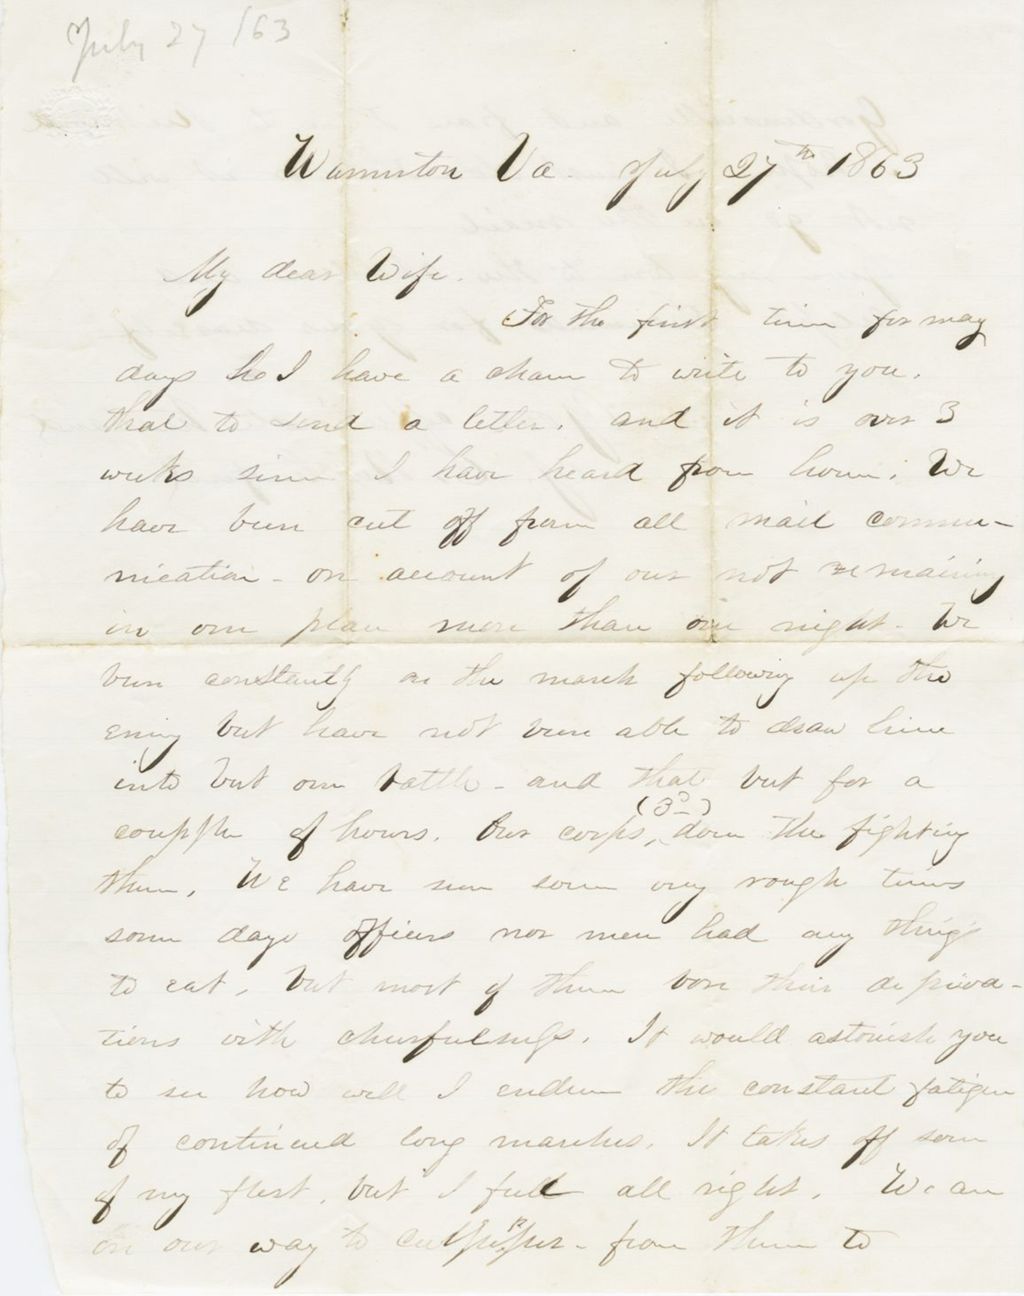 July 27 /63
Warrenton Va. July 27th 1863
My dear Wife.
For the first time for may
days he I have a chance to write to you.
that to send a letter. and it is over 3
weeks since I have heard from home. We
have been cut off from all mail commu-
nication - on account of our not remaining
in one place more than one night - We
been constantly on the march following up the
enemy but have not been able to draw him
into but one battle - and that but for a
coupple of hours. Our corps, (3d) done the fighting
then. We have seen some very rough times
some days officers nor men had any thing
to eat, but most of them bore their depriva-
tions with cheerfulness. It would astonish you
to see how well I endure the constant fatigue
of continued long marches. It takes off some
of my flesh, but I feel all right. We are
on our way to Culpepper - from there to